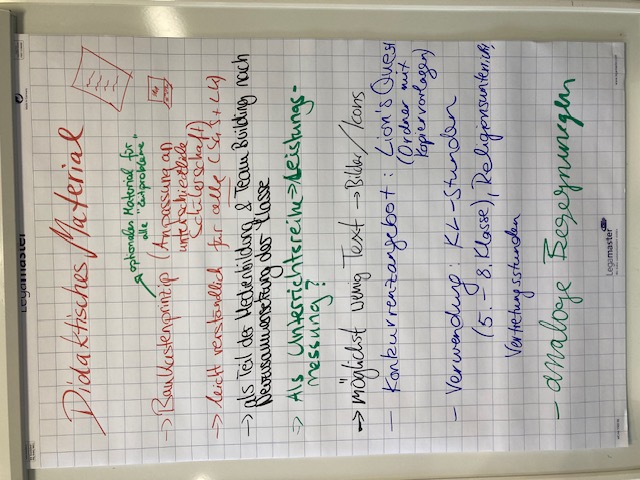 Didaktisches Material
optionales Material für
alle "
→ Baukastenprinzip (Anpassung an
unterschiedliche
Schülerschaft)
→ leicht verständlich für alle
→ als Teil der Medienbildung & Team Building nach
der Klasse
→ Als Unterrichtsreihe → Leistungs-
messung?
→ möglichst wenig Text → Bilder/Icons
- Konkurrenzangebot: Lion's Quest
(Ordner mit
Kopiervorlagen)
- Verwendung: KL-Stunden
(5. - 8. Klasse), Religionsunterricht,
Vertretungsstunden
- analoge Begegnungen
Legamaster
Legamaster